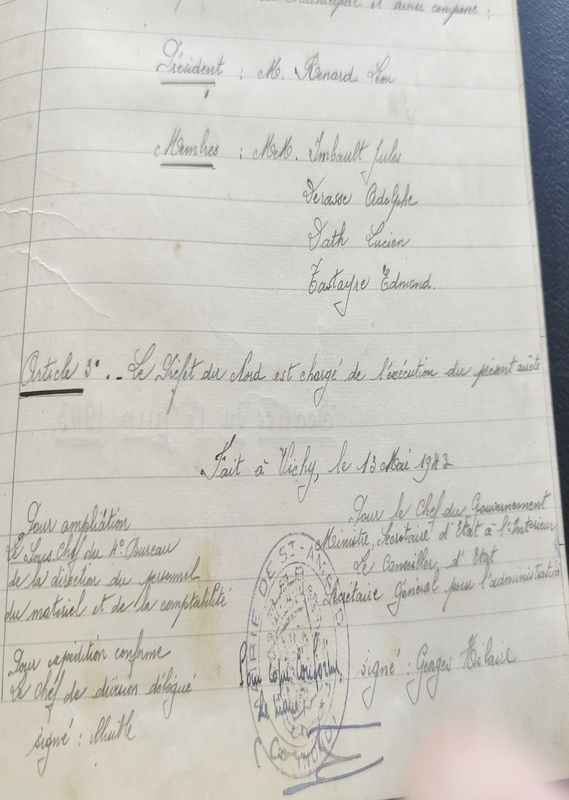 et ainsi composé :
Président : M. Renard Léon
Membres : MM. Imbault Jules
Derasse Adolphe
Dath Lucien
Tastayre Edmond.
Article 3° .. Le Préfet du Nord est chargé de l'éxécution du présent arrêté
Fait à Vichy, le 13 Mai 1943
Pour ampliation
Le Sous Chef du 4° Bureau
de la direction du personnel
du matériel et de la comptabilité
Pour expédition conforme
Le Chef de division délégué
signé :
Pour le Chef du Gouvernement
Ministre, Secrétaire d'Etat à l'Intérieur
Le Conseiller d'Etat
Secrétaire Général pour l'administration
signé : Georges Hilaire
MAIRIE DE ST-
Pour Copie Conforme
Le Maire